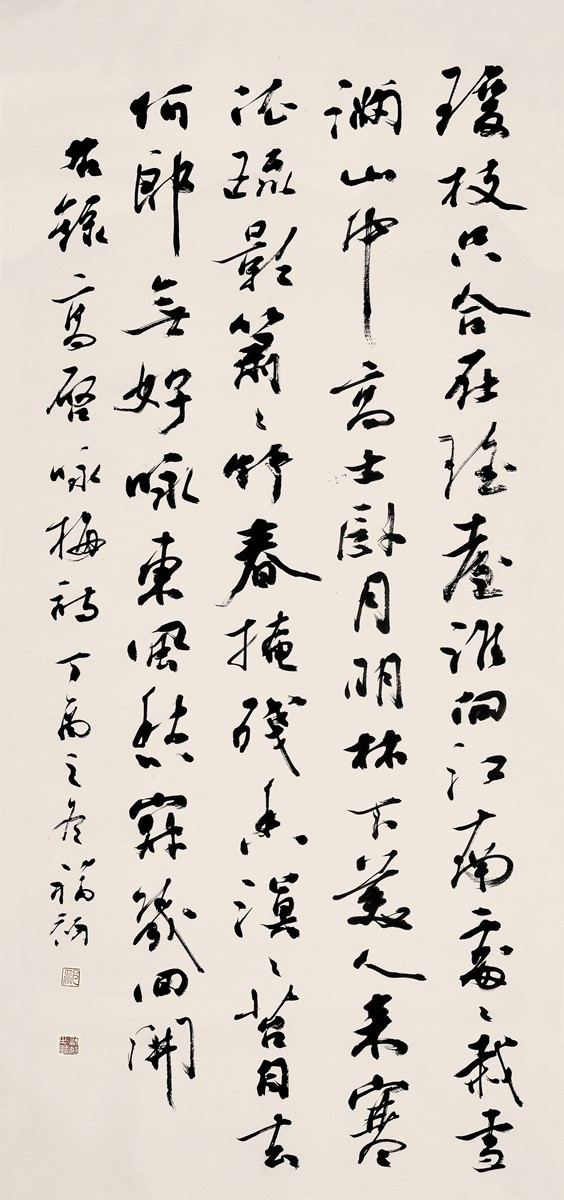 瓊枝只合在瑤臺誰向江南處〻栽雪
滿山中高士臥月明林下美人來寒
依疏影蕭〻竹春掩殘香漠〻苔自去
何郎無好詠東風愁寂幾回開
右錄高啓詠梅詩丁酉之冬福